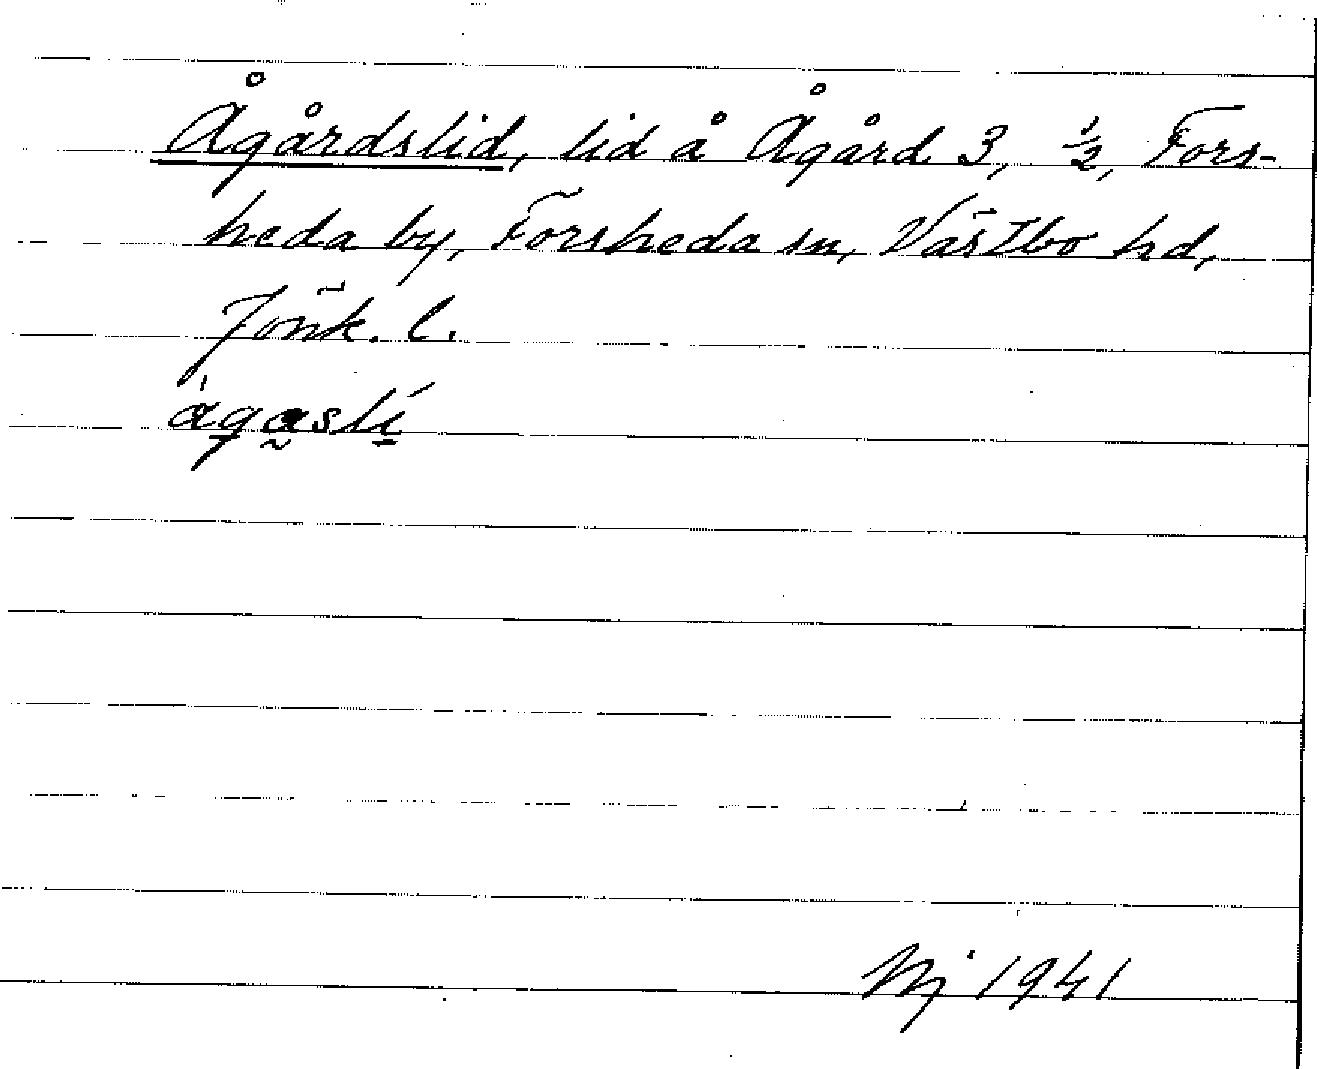 Ågårdslid, lid å Ågård 3, ½, Fors-
heda by, Forsheda sn, Västbo hd,
Jönk. l.
1941